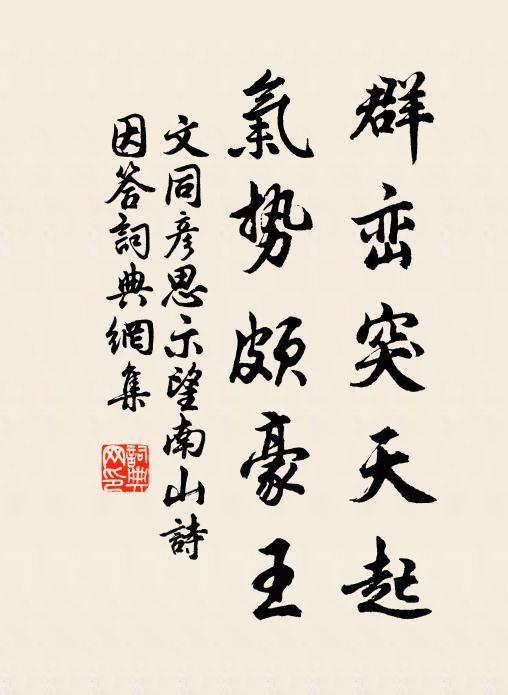 群峦突天起
氣势頗豪王
文同彦思示望南山詩
因答詞典網集
詞典网印